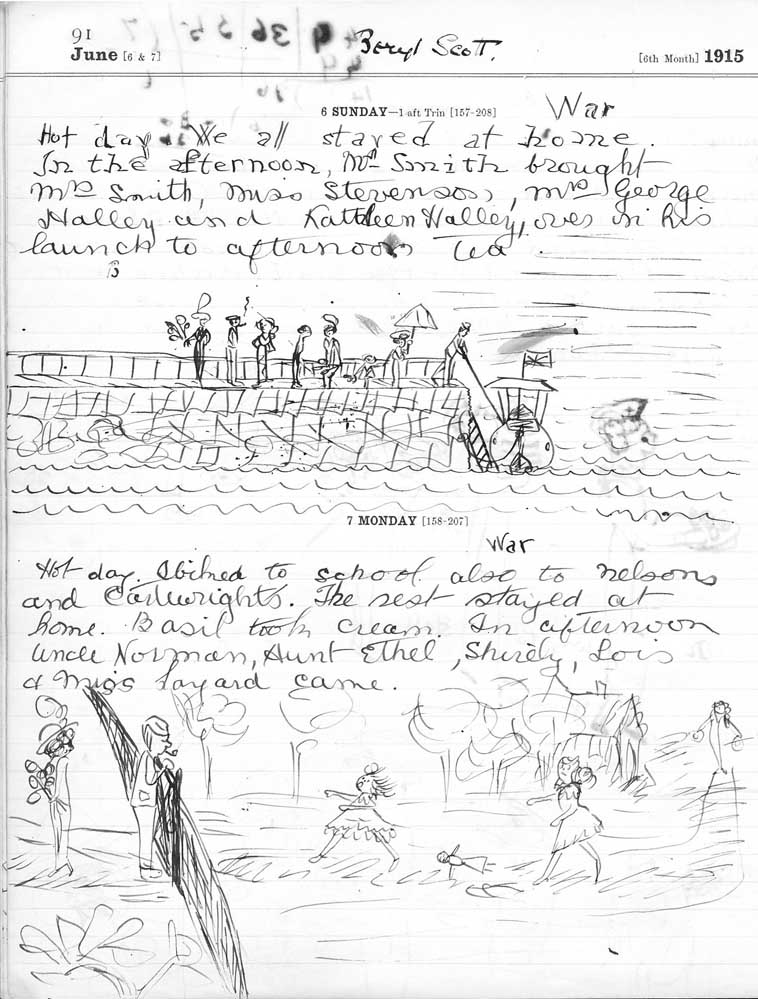 91
June [6 & 7]
Beryl Scott.
[6th Month] 1915
6 SUNDAY—1 aft Trin [157-208]
War
Hot day. We all stayed at home.
In the afternoon, Mr Smith brought
Mrs Smith, Miss Stevenson, Mrs George
Halley and Kathleen Halley, over in his
launch to afternoon tea.
7 MONDAY [158-207]
War
Hot day. I biked to school also to Nelsons
and Cartwrights. The rest stayed at
home. Basil took cream. In afternoon
Uncle Norman, Aunt Ethel, Shirely, Lois
& Miss Layard came.